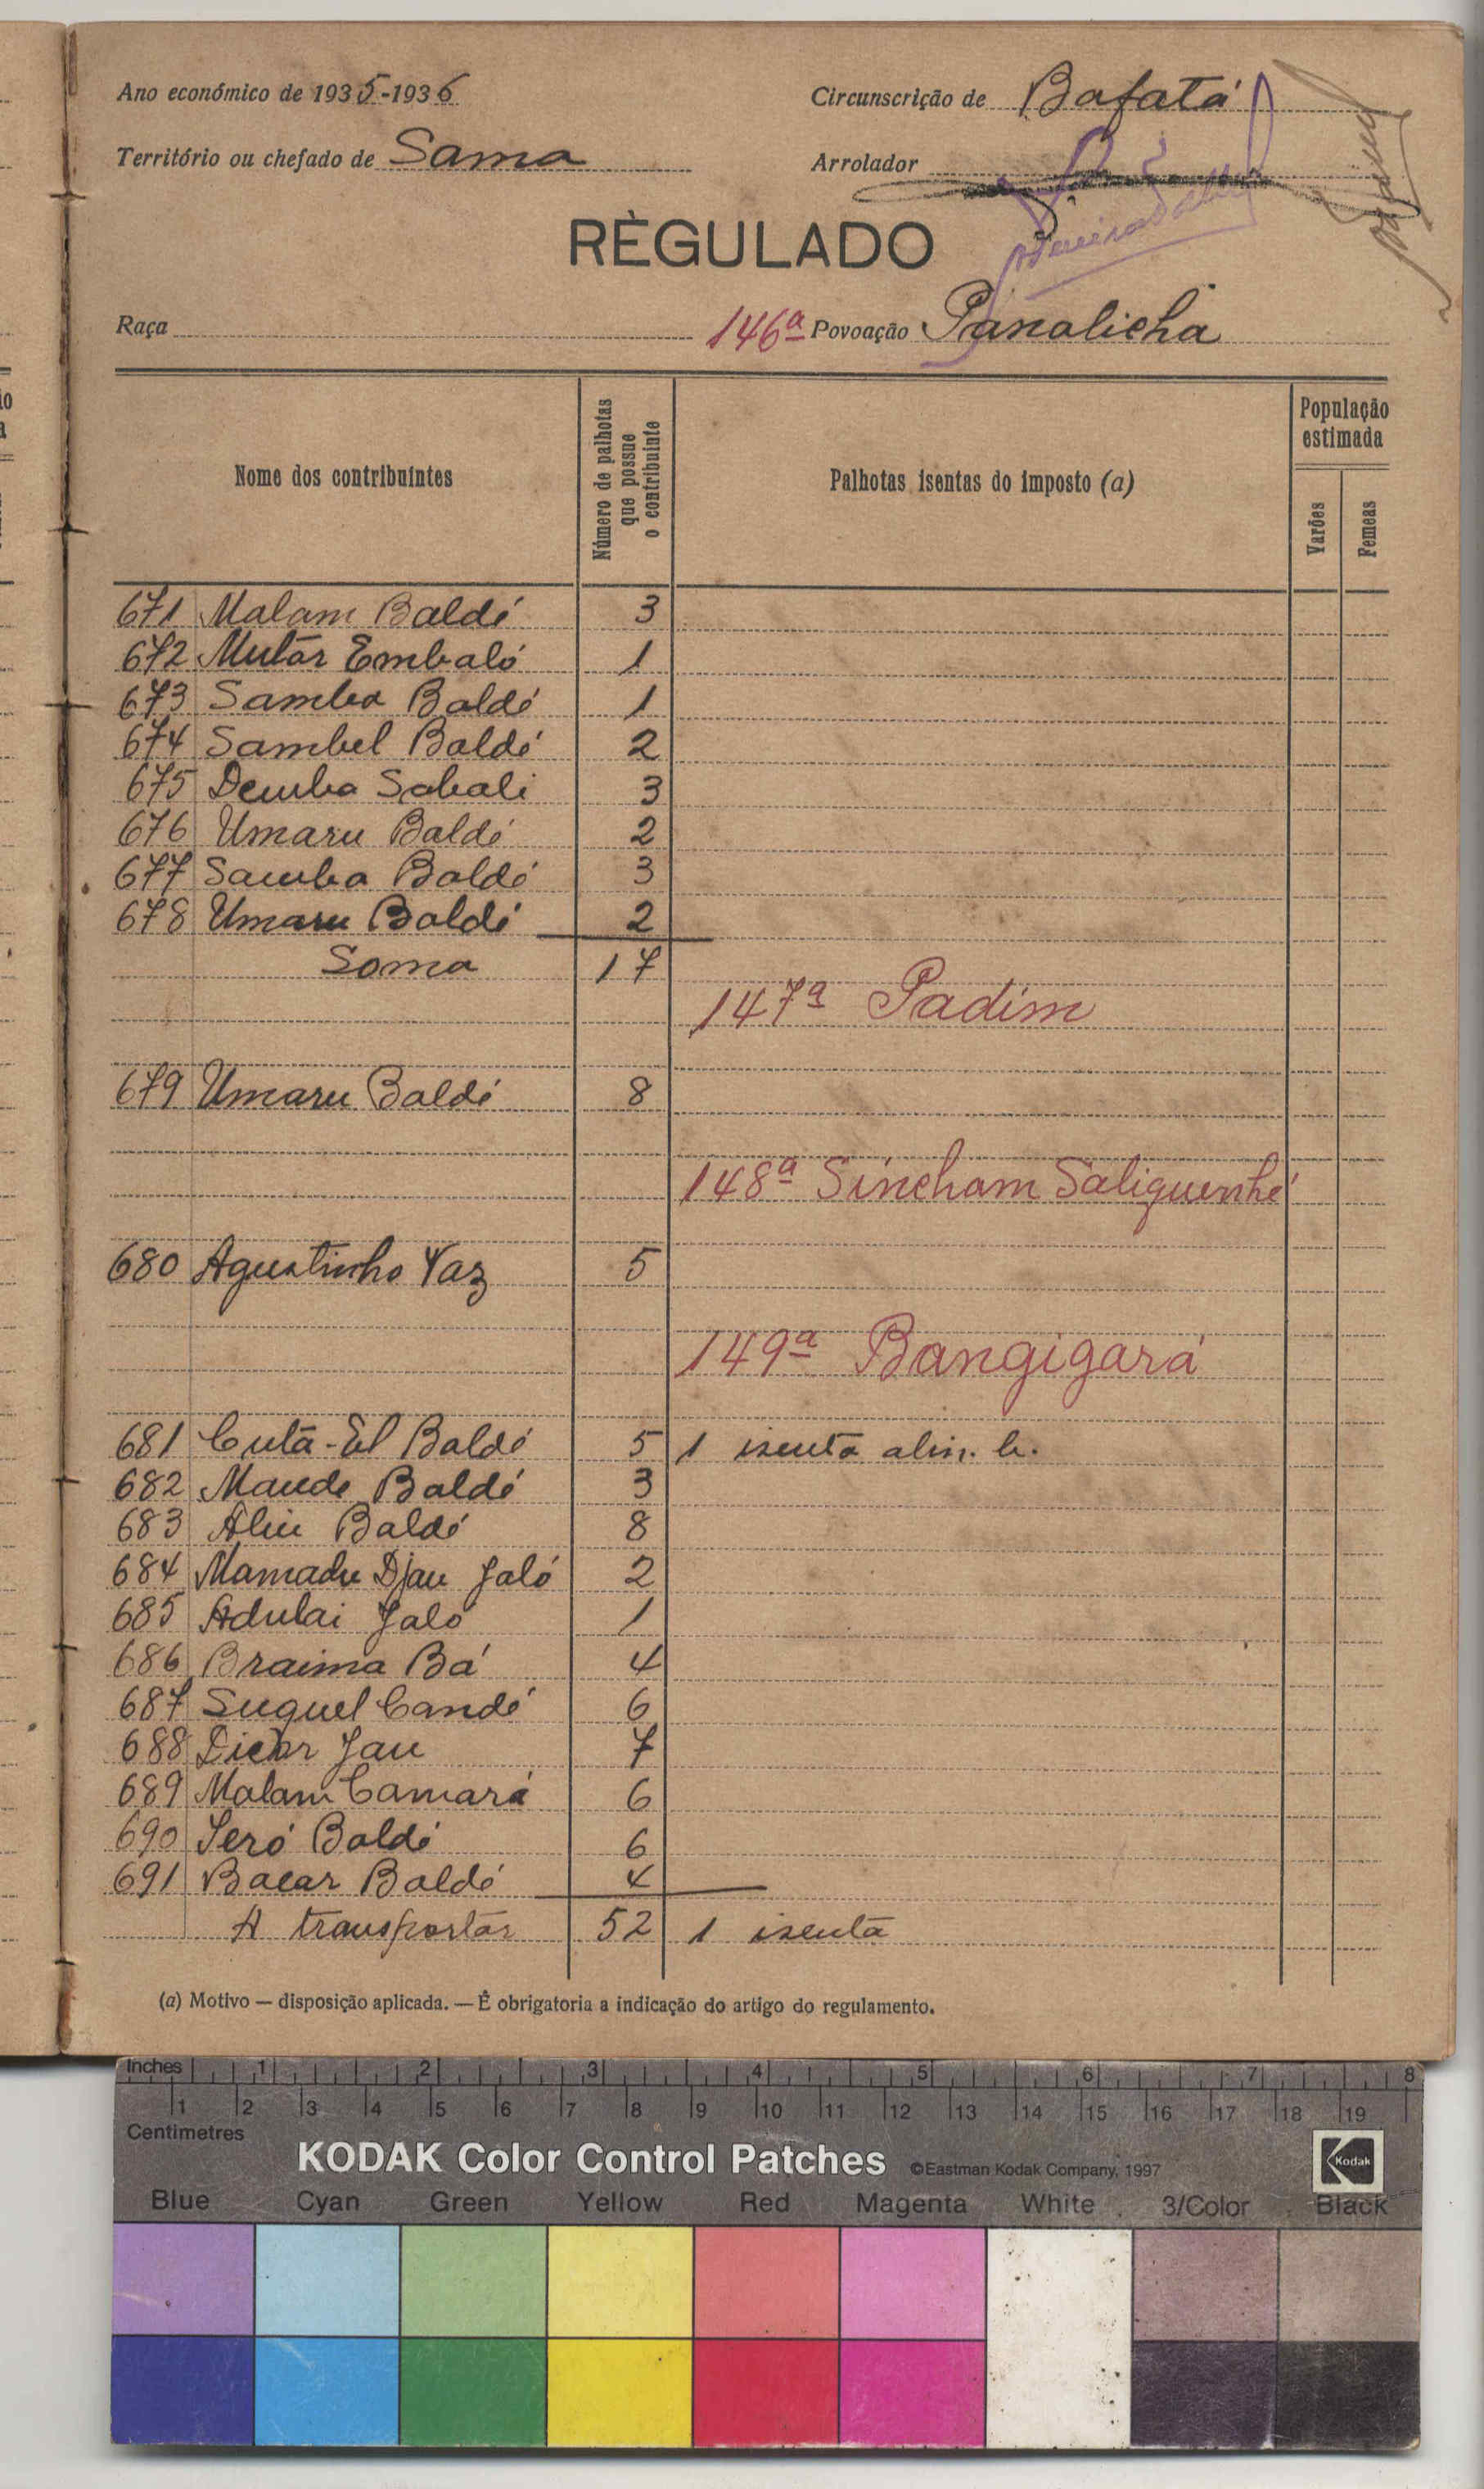 Ano económico de 1935-1936 Circunscrição de Bafatá
Território ou chefado de Sama Arrolador
RÈGULADO
Raça 146ª Povoação Panalicha
Nome dos contribuintes
Número de palhotas que possue o contribuinte
Palhotas isentas do imposto (a)
População estimada
Varões
Femeas
671 Malam Baldé 3
672 Mutar Embaló 1
673 Samba Baldé 1
674 Sambel Baldé 2
675 Demba Sabali 3
676 Umaru Baldé 2
677 Samba Baldé 3
678 Umaru Baldé 2
Soma 17
147ª Padim
679 Umaru Baldé 8
148ª Sincham Saliquenhé
680 Agustinho Vaz 5
149ª Bangigará
681 Cutã-El Baldé 5 1 isenta alin. b.
682 Maude Baldé 3
683 Aliu Baldé 8
684 Mamadu Djau Jaló 2
685 Adulai Jaló 1
686 Braima Bá 4
687 Suquel Candé 6
688 Jau 7
689 Malam Camará 6
690 Seró Baldé 6
691 Bacar Baldé 4
A transportar 52 1 isenta
(a) Motivo — disposição aplicada. — É obrigatoria a indicação do artigo do regulamento.
Inches 1 2 3 4 5 6 7 8
1 2 3 4 5 6 7 8 9 10 11 12 13 14 15 16 17 18 19
Centimetres
KODAK Color Control Patches ©Eastman Kodak Company, 1997 Kodak
Blue Cyan Green Yellow Red Magenta White 3/Color Black